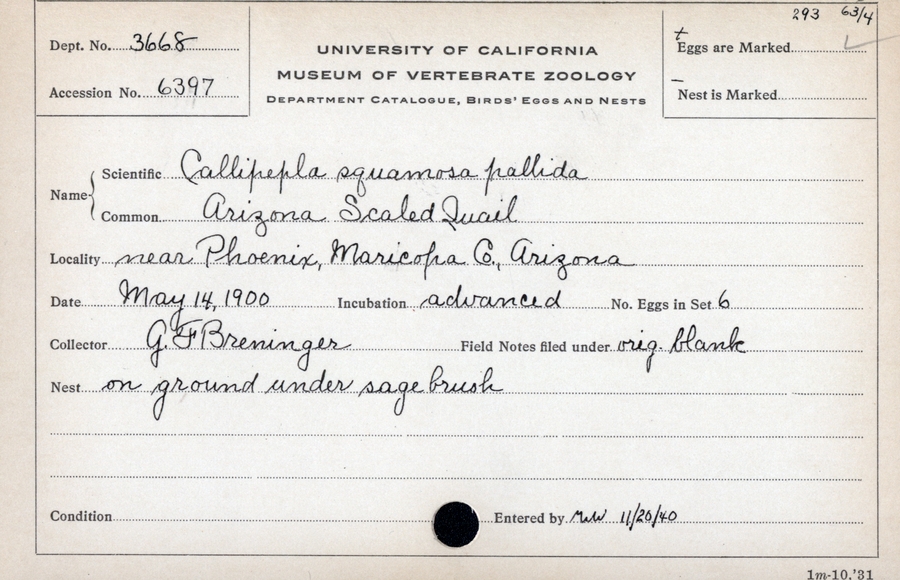 293 63/4
Dept. No. 3668
UNIVERSITY OF CALIFORNIA
Eggs are Marked
Accession No. 6397
MUSEUM OF VERTEBRATE ZOOLOGY
DEPARTMENT CATALOGUE, BIRDS' EGGS AND NESTS
Nest is Marked
Name
Scientific Callipepla squamosa pallida
Common Arizona Scaled Quail
Locality near Phoenix, Maricopa Co., Arizona
Date May 14, 1900 Incubation advanced No. Eggs in Set 6
Collector G. F Breninger Field Notes filed under orig. blank
Nest on ground under sage brush
Condition Entered by 11/20/40
1m-10,'31